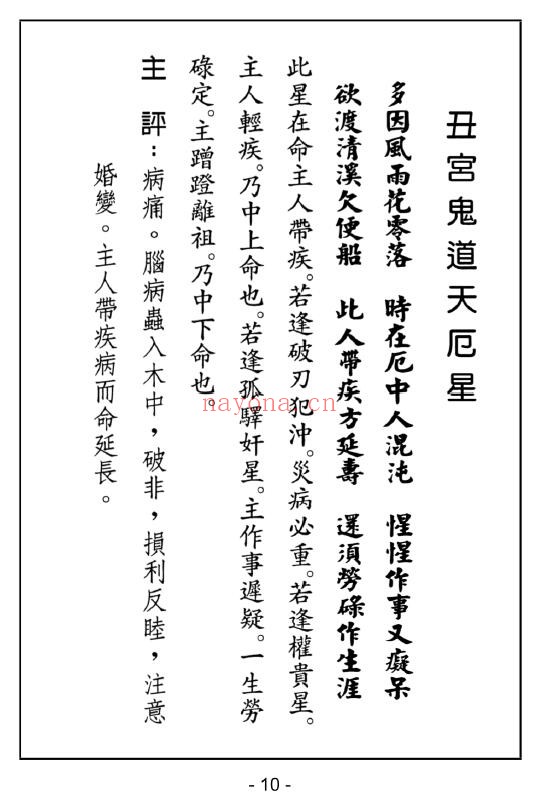 丑宮鬼道天厄星
多因風雨花零落　時在厄中人混沌　惺惺作事又癡呆
欲渡清溪欠便船　此人帶疾方延壽　還須勞碌作生涯
此星在命主人帶疾。若逢破刃犯沖。災病必重。若逢權貴星。
主人輕疾。乃中上命也。若逢孤驛奸星。主作事遲疑。一生勞
碌定。主蹭蹬離祖。乃中下命也。
主　評：病痛。腦病蟲入木中，破非，損利反睦，注意
婚變。主人帶疾病而命延長。
nayona.cn
- 10 -